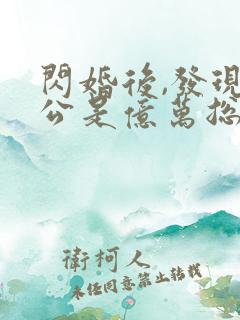 閃婚後,發現
公是億萬總
衛柯人
未任同意禁止转载